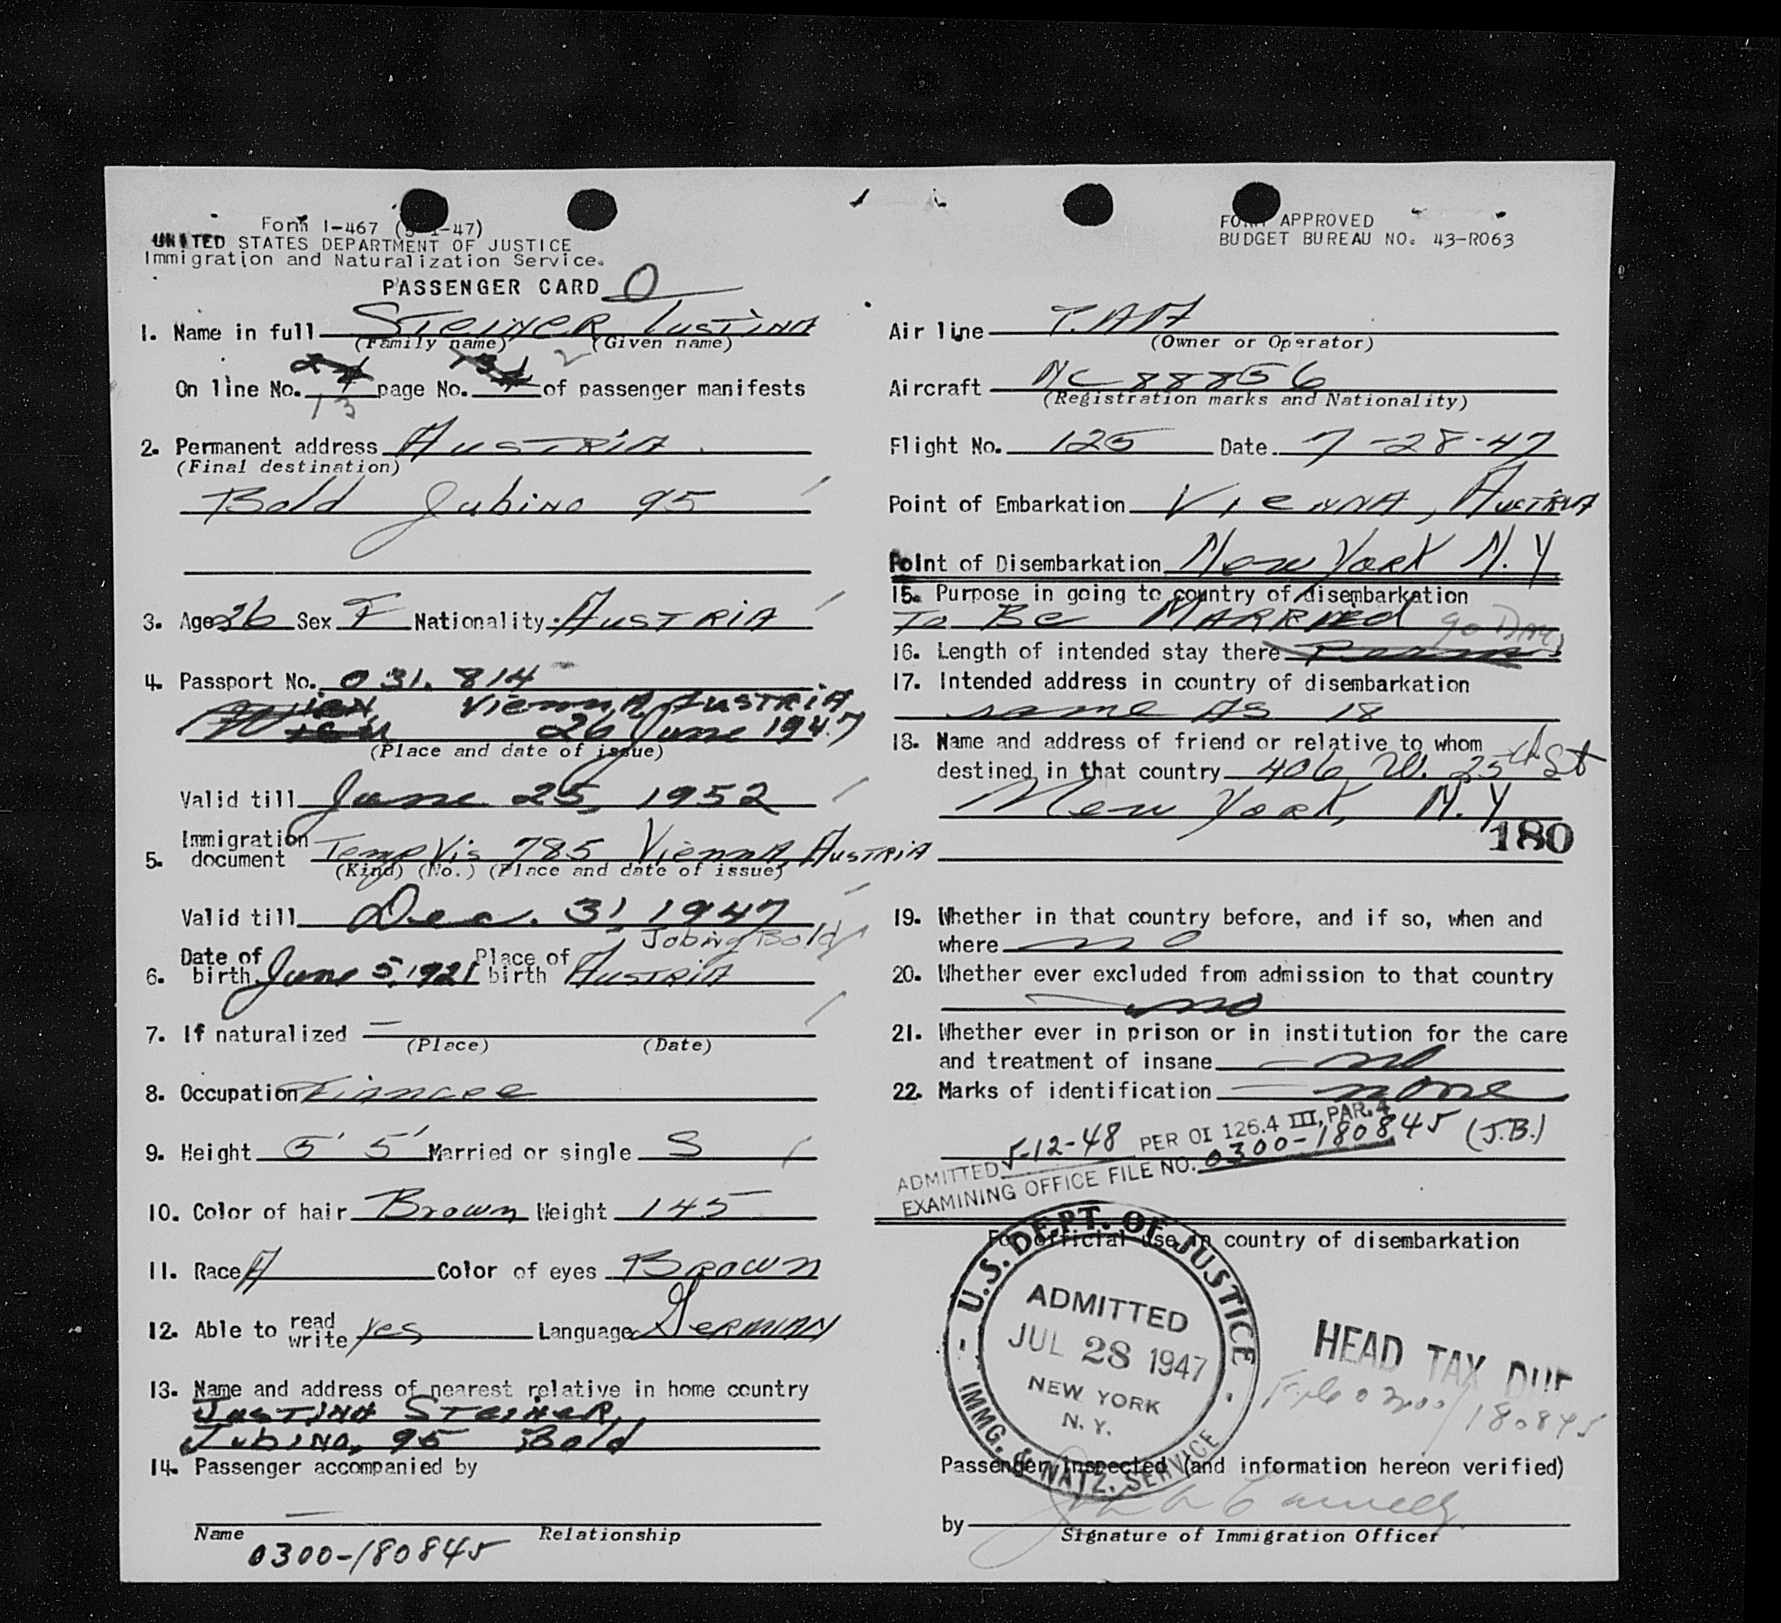 Form I-467 (5-1-47)
UNITED STATES DEPARTMENT OF JUSTICE
Immigration and Naturalization Service.
PASSENGER CARD O
1. Name in full STEINER JUSTINA
(Family name) (Given name)
On line No. 13 page No. 2 of passenger manifests
2. Permanent address AUSTRIA
(Final destination)
Bold Jubing 95
3. Age 26 Sex F Nationality AUSTRIA
4. Passport No. 031.814
Vienna, AUSTRIA
26 June 1947
(Place and date of issue)
Valid till June 25, 1952
5. Immigration document Temp Vis 785 Vienna, AUSTRIA
(Kind) (No.) (Place and date of issue)
Valid till Dec. 31 1947
Jobing Bold
6. Date of birth June 5, 1921 Place of birth AUSTRIA
7. If naturalized —
(Place) (Date)
8. Occupation Fiancee
9. Height 5' 5' Married or single S
10. Color of hair Brown Weight 145
11. Race Color of eyes Brown
12. Able to read write yes Language GERMAN
13. Name and address of nearest relative in home country
JUSTINA STEINER,
Jubing, 95 Bold
14. Passenger accompanied by
—
Name Relationship
0300-180845
FORM APPROVED
BUDGET BUREAU NO. 43-R063
Air line T.A.A
(Owner or Operator)
Aircraft NC 88856
(Registration marks and Nationality)
Flight No. 125 Date 7-28-47
Point of Embarkation VIENNA, AUSTRIA
Point of Disembarkation New York N.Y
15. Purpose in going to country of disembarkation
To Be MARRIED
16. Length of intended stay there Perm 90 Days
17. Intended address in country of disembarkation
same AS 18
18. Name and address of friend or relative to whom
destined in that country 406 W. 25th St
New York, N.Y
180
19. Whether in that country before, and if so, when and
where no
20. Whether ever excluded from admission to that country
— no
21. Whether ever in prison or in institution for the care
and treatment of insane — no
22. Marks of identification — none
ADMITTED 5-12-48 PER OI 126.4 III, PAR. 4
EXAMINING OFFICE FILE NO. 0300-180845 (J.B.)
For official use in country of disembarkation
U.S. DEPT. OF JUSTICE
ADMITTED
JUL 28 1947
NEW YORK
N.Y.
IMMG. & NATZ. SERVICE
HEAD TAX DUE
File 0300/180845
Passenger inspected (and information hereon verified)
by
Signature of Immigration Officer